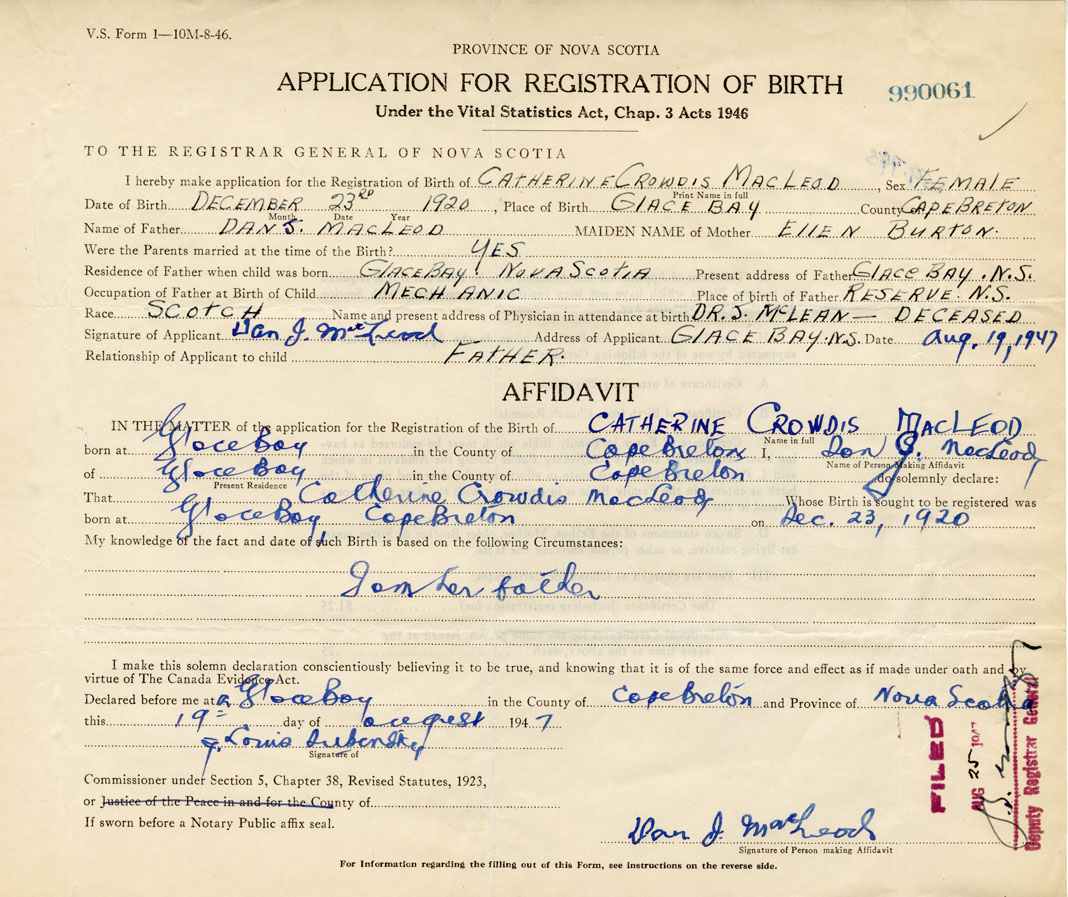 V.S. Form 1—10M-8-46.
PROVINCE OF NOVA SCOTIA
APPLICATION FOR REGISTRATION OF BIRTH
990061
Under the Vital Statistics Act, Chap. 3 Acts 1946
TO THE REGISTRAR GENERAL OF NOVA SCOTIA
I hereby make application for the Registration of Birth of CATHERINE CROWDIS MACLEOD, Sex FEMALE
Print Name in full
Date of Birth DECEMBER 23RD 1920, Place of Birth GLACE BAY County CAPE BRETON
Month Date Year
Name of Father DAN J. MACLEOD MAIDEN NAME of Mother ELLEN BURTON.
Were the Parents married at the time of the Birth? YES
Residence of Father when child was born GLACE BAY, NOVA SCOTIA Present address of Father GLACE BAY. N.S.
Occupation of Father at Birth of Child MECHANIC Place of birth of Father RESERVE. N.S.
Race SCOTCH Name and present address of Physician in attendance at birth DR. S. MCLEAN — DECEASED
Signature of Applicant Dan J. MacLeod Address of Applicant GLACE BAY. N.S. Date Aug. 19, 1947
Relationship of Applicant to child FATHER.
AFFIDAVIT
IN THE MATTER of the application for the Registration of the Birth of CATHERINE CROWDIS MACLEOD
Name in full
born at Glace Bay in the County of Cape Breton I, Dan J. MacLeod
Name of Person Making Affidavit
of Glace Bay in the County of Cape Breton do solemnly declare:
Present Residence
That Catherine Crowdis MacLeod Whose Birth is sought to be registered was
born at Glace Bay, Cape Breton on Dec. 23, 1920
My knowledge of the fact and date of such Birth is based on the following Circumstances:
I am her father
I make this solemn declaration conscientiously believing it to be true, and knowing that it is of the same force and effect as if made under oath and by
virtue of The Canada Evidence Act.
Declared before me at Glace Bay in the County of Cape Breton and Province of Nova Scotia
this 19th day of august 1947
Louis Dubinsky
Signature of
Commissioner under Section 5, Chapter 38, Revised Statutes, 1923,
or Justice of the Peace in and for the County of
If sworn before a Notary Public affix seal.
Dan J. MacLeod
Signature of Person making Affidavit
For Information regarding the filling out of this Form, see instructions on the reverse side.
FILED
AUG 25 1947
Deputy Registrar General